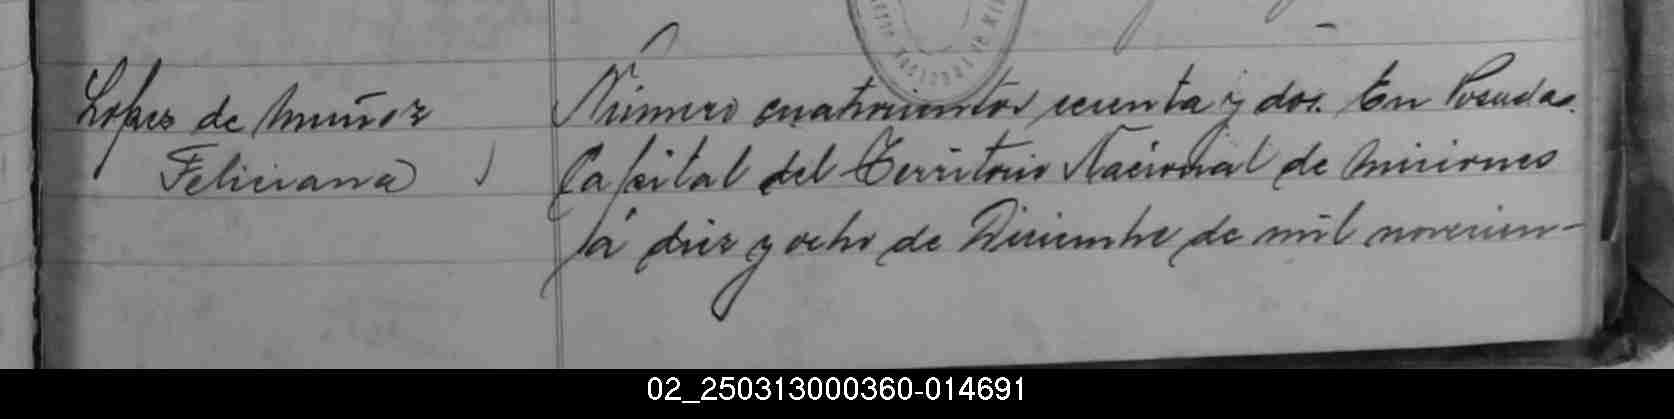 Lopez de Muñoz
Feliciana
Número cuatrocientos secenta y dos. En Posadas.
Capital del Territorio Nacional de Misiones
á diez y ocho de Diciembre de mil novecien-
02_250313000360-014691